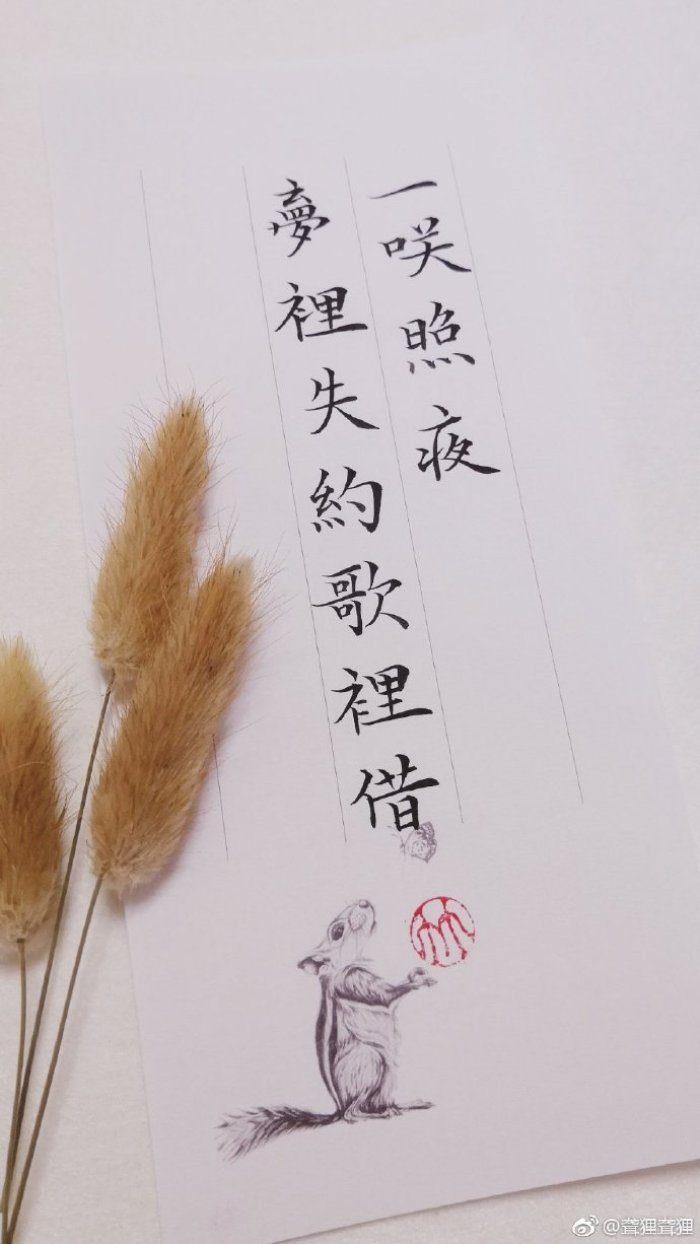 一咲照夜
夢裡失約歌裡借
@聋狸聋狸